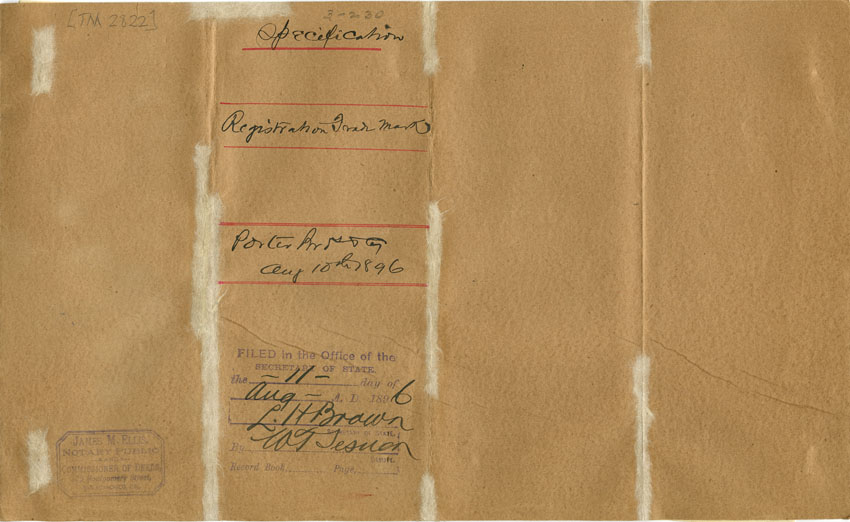 [TM 2822]
3-230
Specification
Registration Trade Mark
Porter Bros & Co
Aug 10th 1896
FILED in the Office of the
SECRETARY OF STATE.
the - 11 - day of
Aug - A. D. 1896
L. H. Brown
W. T.
By
Record Book Page
JAMES M. ELLIS,
NOTARY PUBLIC
AND
COMMISSIONER OF DEEDS,
Montgomery Street,